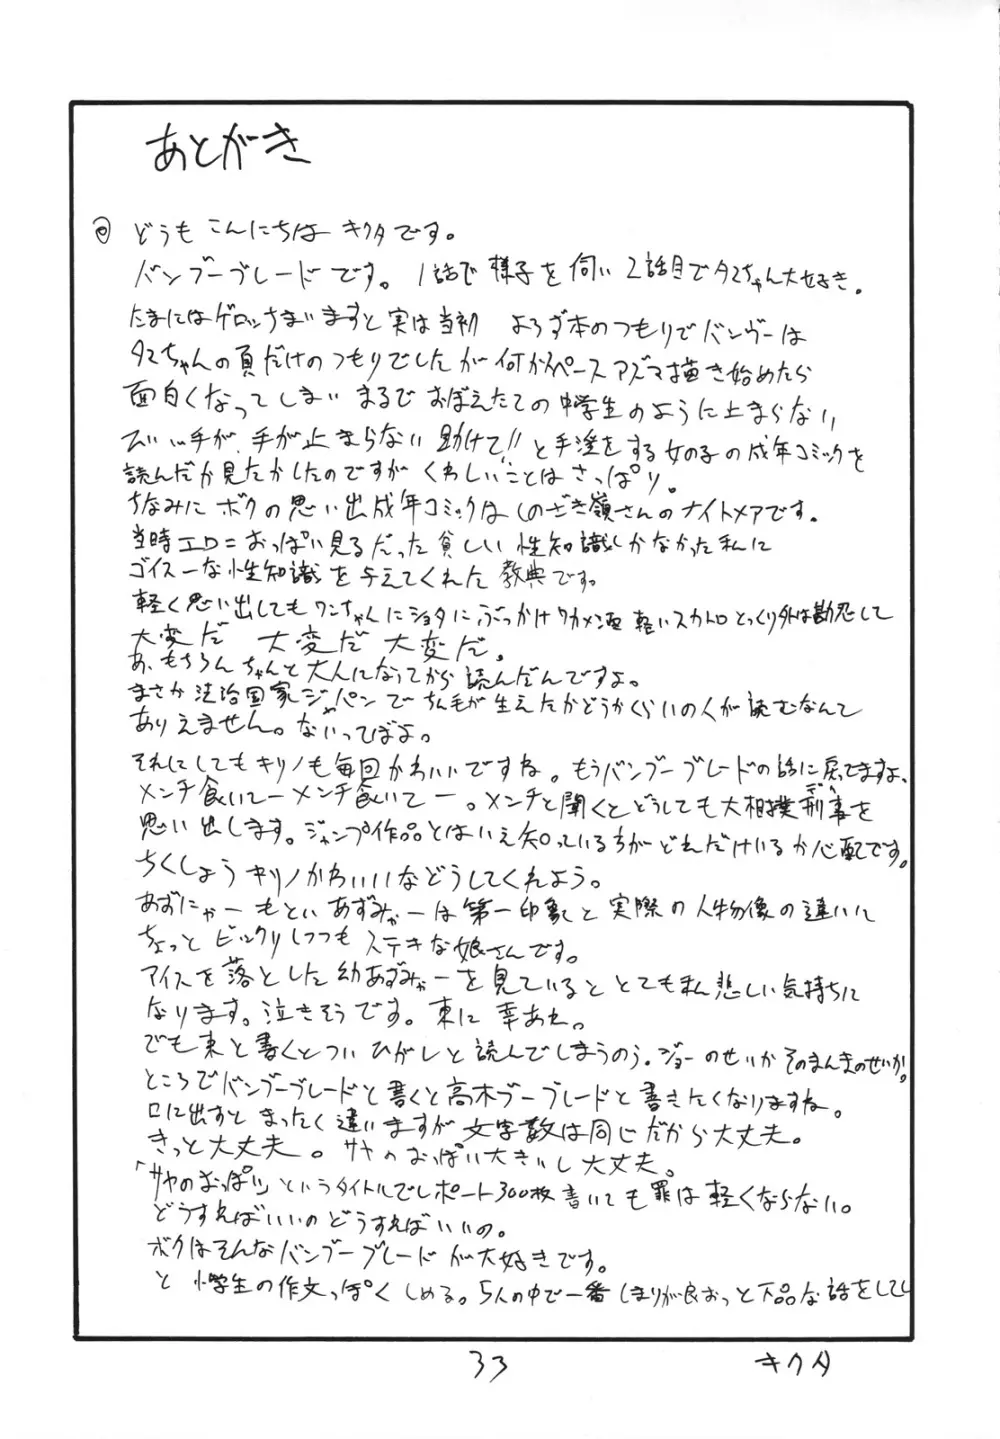 あとがき
◎ どうも こんにちは キクタです。
バンブーブレードです。1話で様子を伺い2話目でタマちゃん大好き。
たまにはゲロッさまいますと実は当初 よろず本のつもりでバンブーは
タマちゃんの頁だけのつもりでしたが何かハイペースアズマ描き始めたら
面白くなってしまい まるでおぼえたての中学生のように止まらない
手が 手が止まらない 助けて!! と手淫をする女の子の成年コミックを
読んだか見たかしたのですが くわしいことはさっぱり。
ちなみに ボクの思い出成年コミックはしのざき嶺さんのナイトメアです。
当時エロ=おっぱい見るだった貧しい 性知識しかなかった私に
ゴイスーな性知識を与えてくれた 教典です。
軽く思い出しても ワンちゃんにショタにぶっかけワカメ酒 軽いスカトロ とっくり外は勘忍して
大変だ 大変だ 大変だ。
あ、もちろん ちゃんと大人になってから 読んだんですよ。
まさか法治国家ジャパンでちん毛が生えたかどうかくらいの人が読むなんて
ありえません。ないってばよ。
それにしてもキリノも毎回かわいいですね。もうバンブーブレードの話に戻ってますよ、
メンチ食いてーメンチ食いてー。メンチと聞くとどうしても大相撲刑事を
思い出します。ジャンプ作品とはいえ知っている方がどれだけいるか心配です。
ちくしょう キリノかわいいなどうしてくれよう。
あずにゃー もとい あずみゃーは第一印象と実際の人物像の違いに
ちょっと ビックリしつつも ステキな娘さんです。
アイスを落とした幼あずみゃーを見ていると とても私悲しい気持ちに
なります。泣きそうです。東に 幸あれ。
でも東と書くとつい ひがしと読んでしまうのう。ジョーのせいか そのまんまのせいか。
ところでバンブーブレードと書くと高木ブーブレードと書きたくなりますね。
口に出すと まったく違いますが文字数は同じだから大丈夫。
きっと大丈夫。サヤのおっぱい大きいし大丈夫。
「サヤのおっぱい」というタイトルでレポート300枚書いても罪は軽くならない。
どうすればいいの どうすればいいの。
ボクはそんなバンブーブレードが大好きです。
と 小学生の作文っぽく しめる。5人の中で一番しまりが良おっと下品な話をしてし
33
キクタ